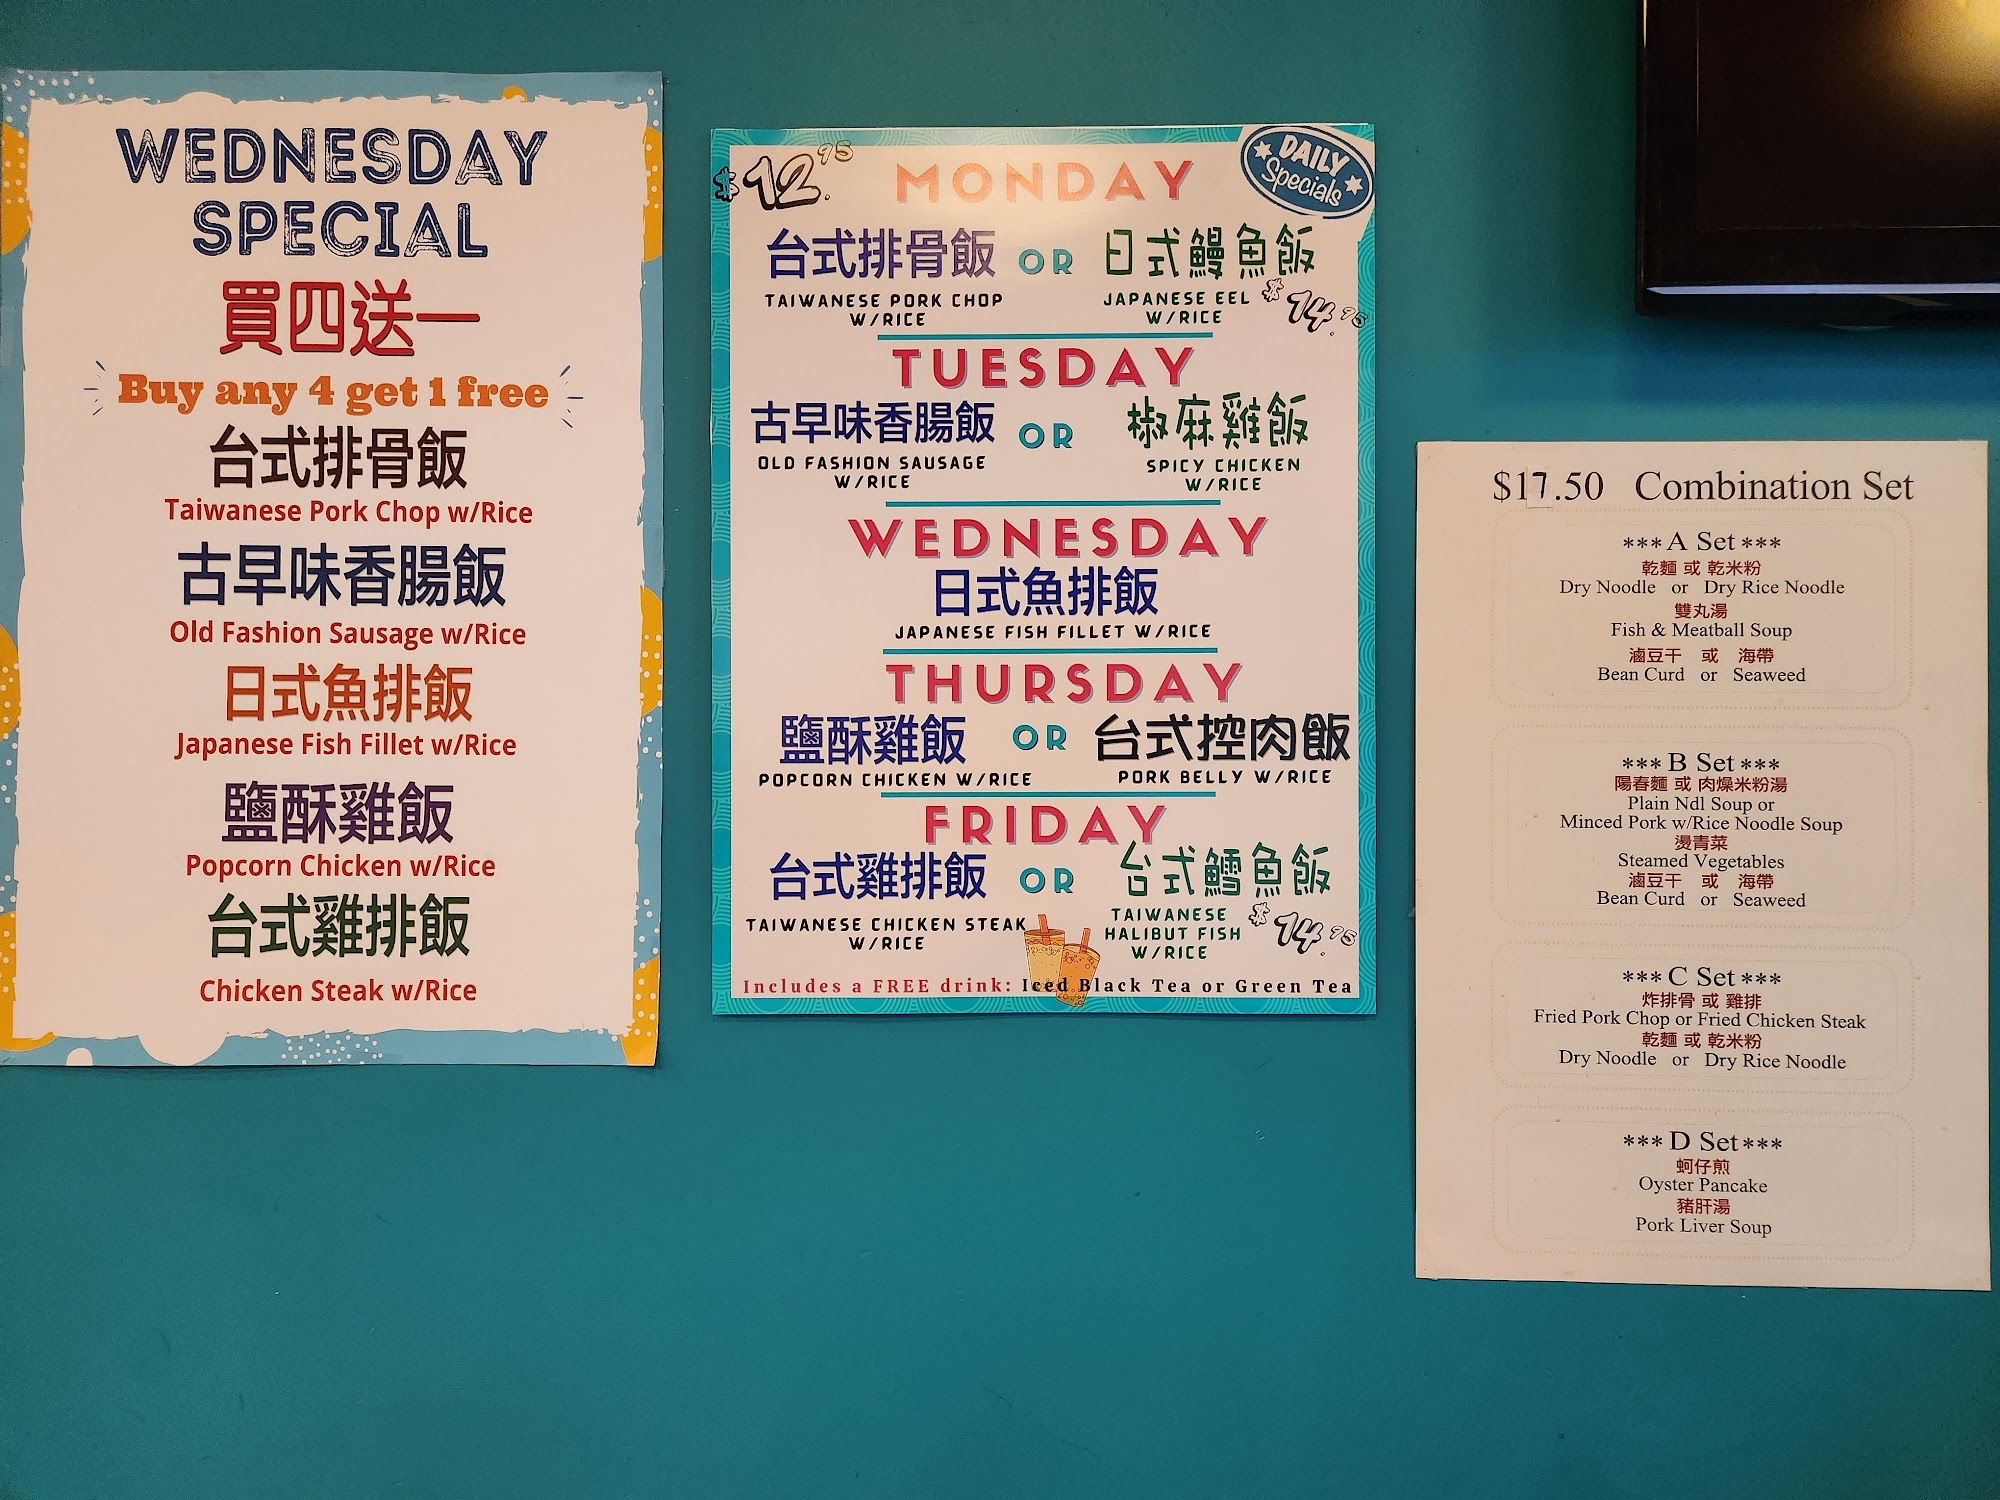 WEDNESDAY
SPECIAL
買四送一
Buy any 4 get 1 free
台式排骨飯
Taiwanese Pork Chop w/Rice
古早味香腸飯
Old Fashion Sausage w/Rice
日式魚排飯
Japanese Fish Fillet w/Rice
鹽酥雞飯
Popcorn Chicken w/Rice
台式雞排飯
Chicken Steak w/Rice
$12.95
MONDAY
DAILY
Specials
台式排骨飯 OR 日式鰻魚飯
TAIWANESE PORK CHOP W/RICE
JAPANESE EEL W/RICE
$14.95
TUESDAY
古早味香腸飯 OR 椒麻雞飯
OLD FASHION SAUSAGE W/RICE
SPICY CHICKEN W/RICE
WEDNESDAY
日式魚排飯
JAPANESE FISH FILLET W/RICE
THURSDAY
鹽酥雞飯 OR 台式控肉飯
POPCORN CHICKEN W/RICE
PORK BELLY W/RICE
FRIDAY
台式雞排飯 OR 台式鱈魚飯
TAIWANESE CHICKEN STEAK W/RICE
TAIWANESE HALIBUT FISH W/RICE
$14.95
Includes a FREE drink: Iced Black Tea or Green Tea
$17.50 Combination Set
***A Set***
乾麵 或 乾米粉
Dry Noodle or Dry Rice Noodle
雙丸湯
Fish & Meatball Soup
滷豆干 或 海帶
Bean Curd or Seaweed
***B Set***
陽春麵 或 肉燥米粉湯
Plain Ndl Soup or
Minced Pork w/Rice Noodle Soup
燙青菜
Steamed Vegetables
滷豆干 或 海帶
Bean Curd or Seaweed
***C Set***
炸排骨 或 雞排
Fried Pork Chop or Fried Chicken Steak
乾麵 或 乾米粉
Dry Noodle or Dry Rice Noodle
***D Set***
蚵仔煎
Oyster Pancake
豬肝湯
Pork Liver Soup